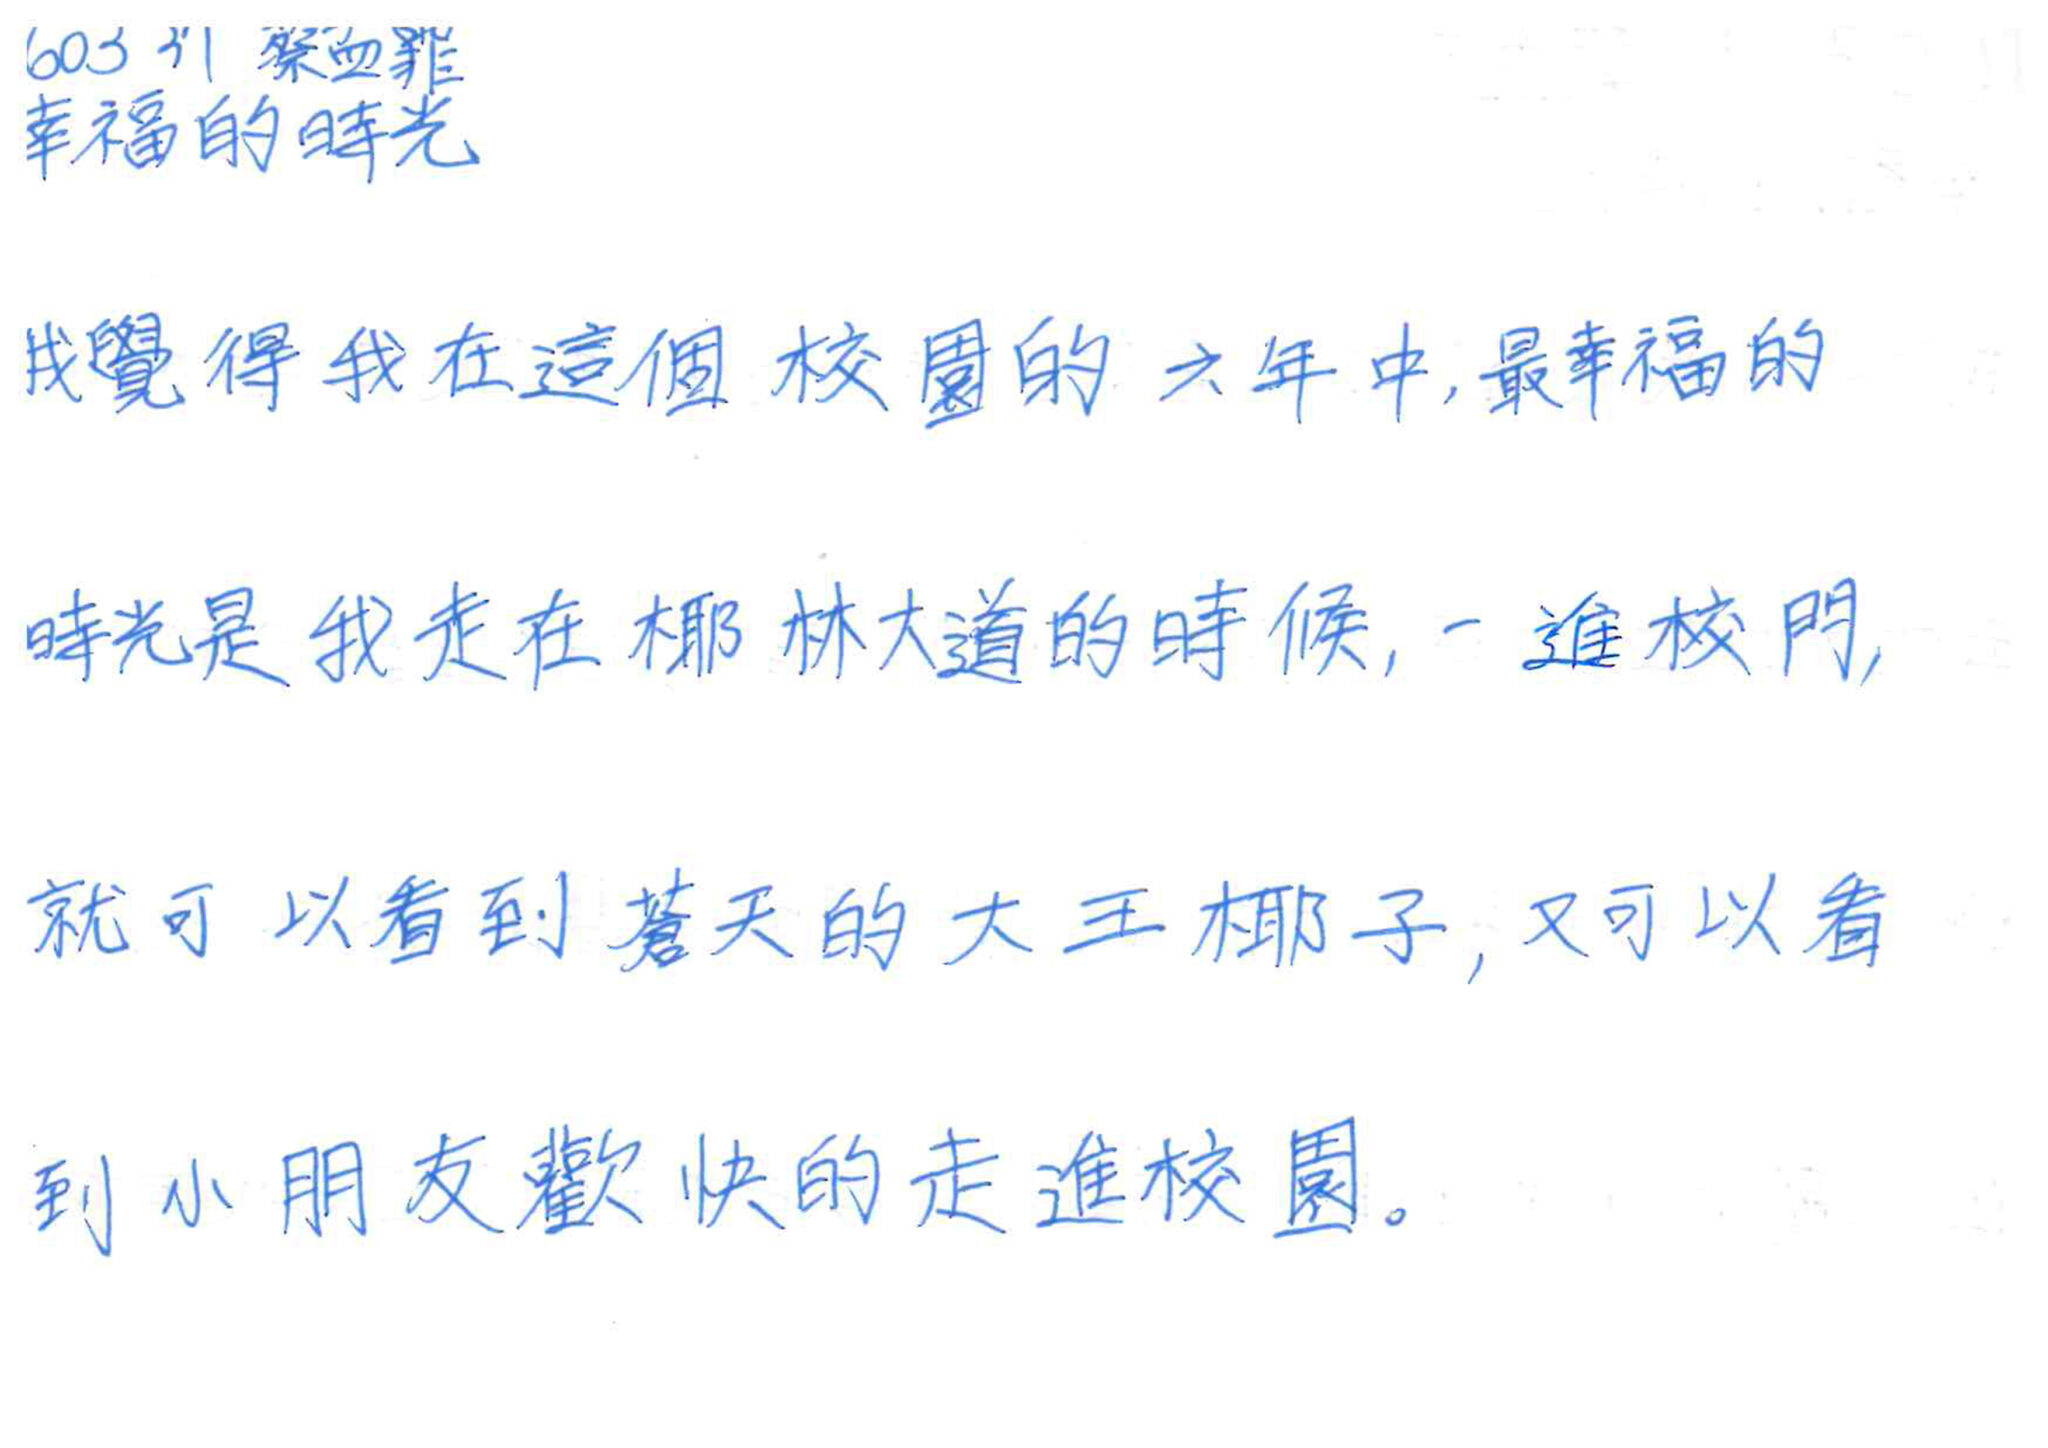 603 31
幸福的時光
我覺得我在這個校園的六年中,最幸福的
時光是我走在椰林大道的時候,一進校門,
就可以看到蒼天的大王椰子,又可以看
到小朋友歡快的走進校園。